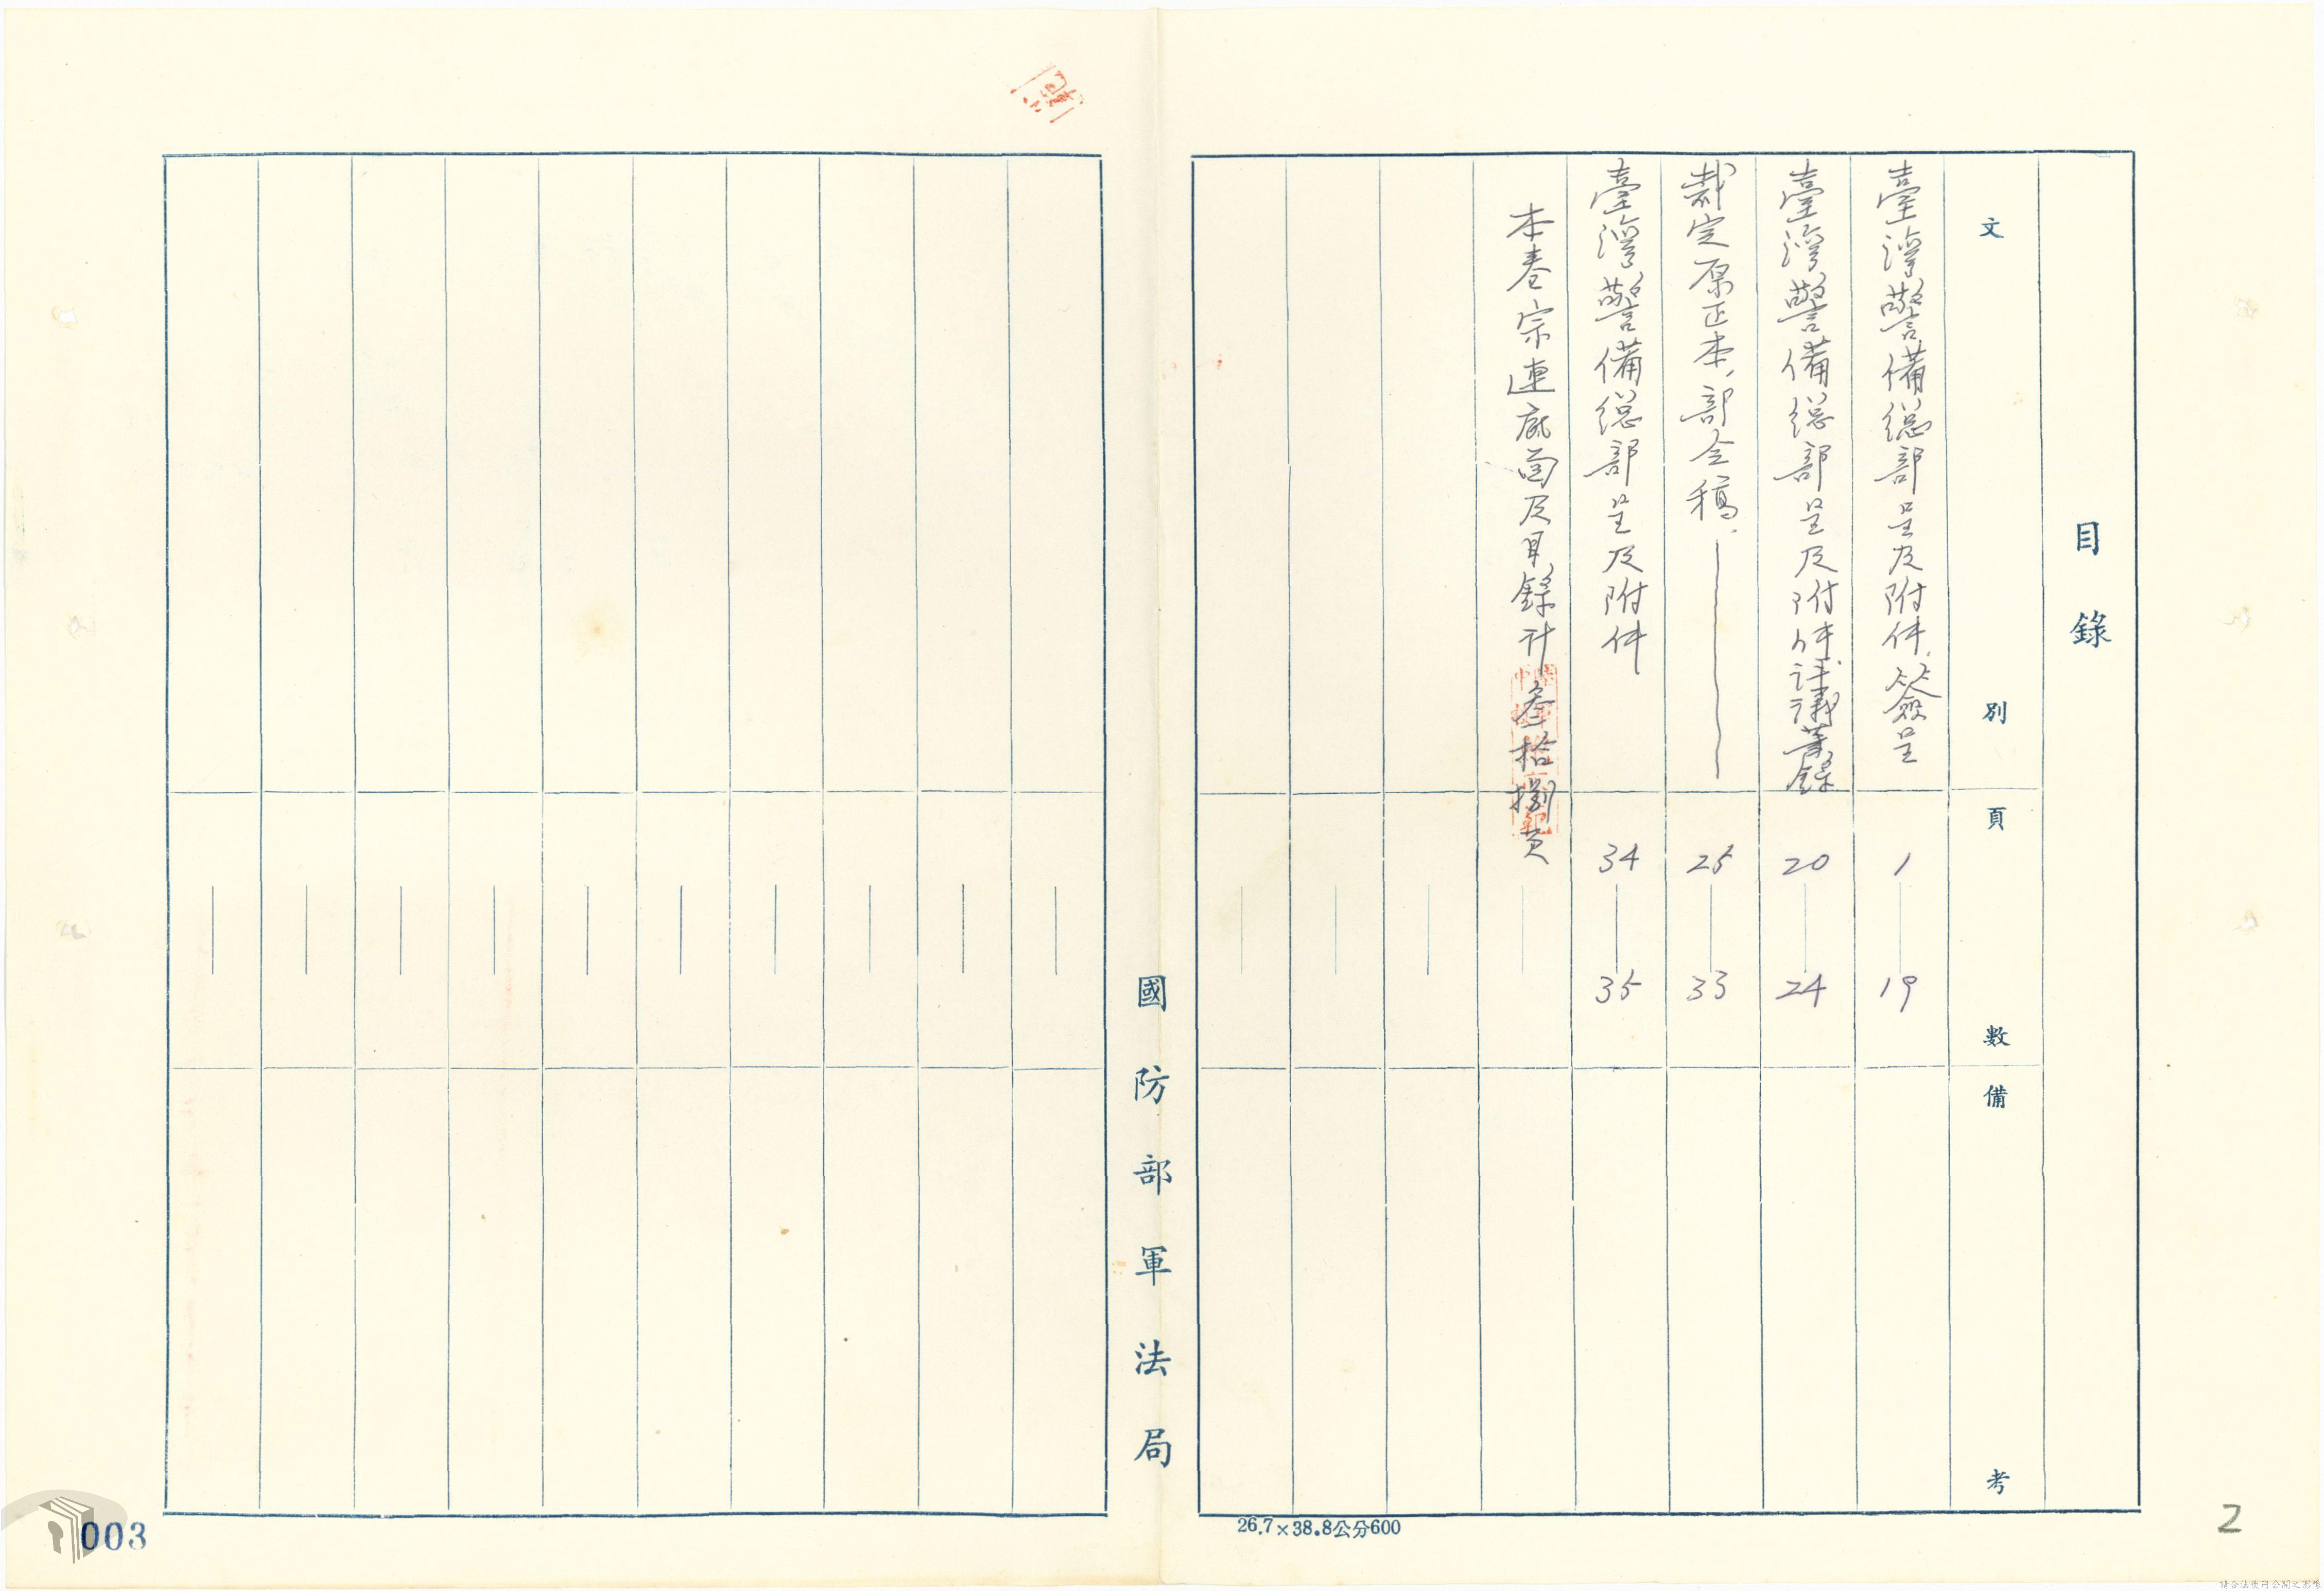 目錄
文別
頁數
備考
臺灣警備總部呈及附件、簽呈
1—19
臺灣警備總部呈及附件評議筆錄
20—24
裁定原正本、部令稿
25—33
臺灣警備總部呈及附件
34—35
本卷宗連底面及目錄計叁拾捌頁
國防部軍法局
26.7×38.8公分600
2
003
請合法使用公開之影像